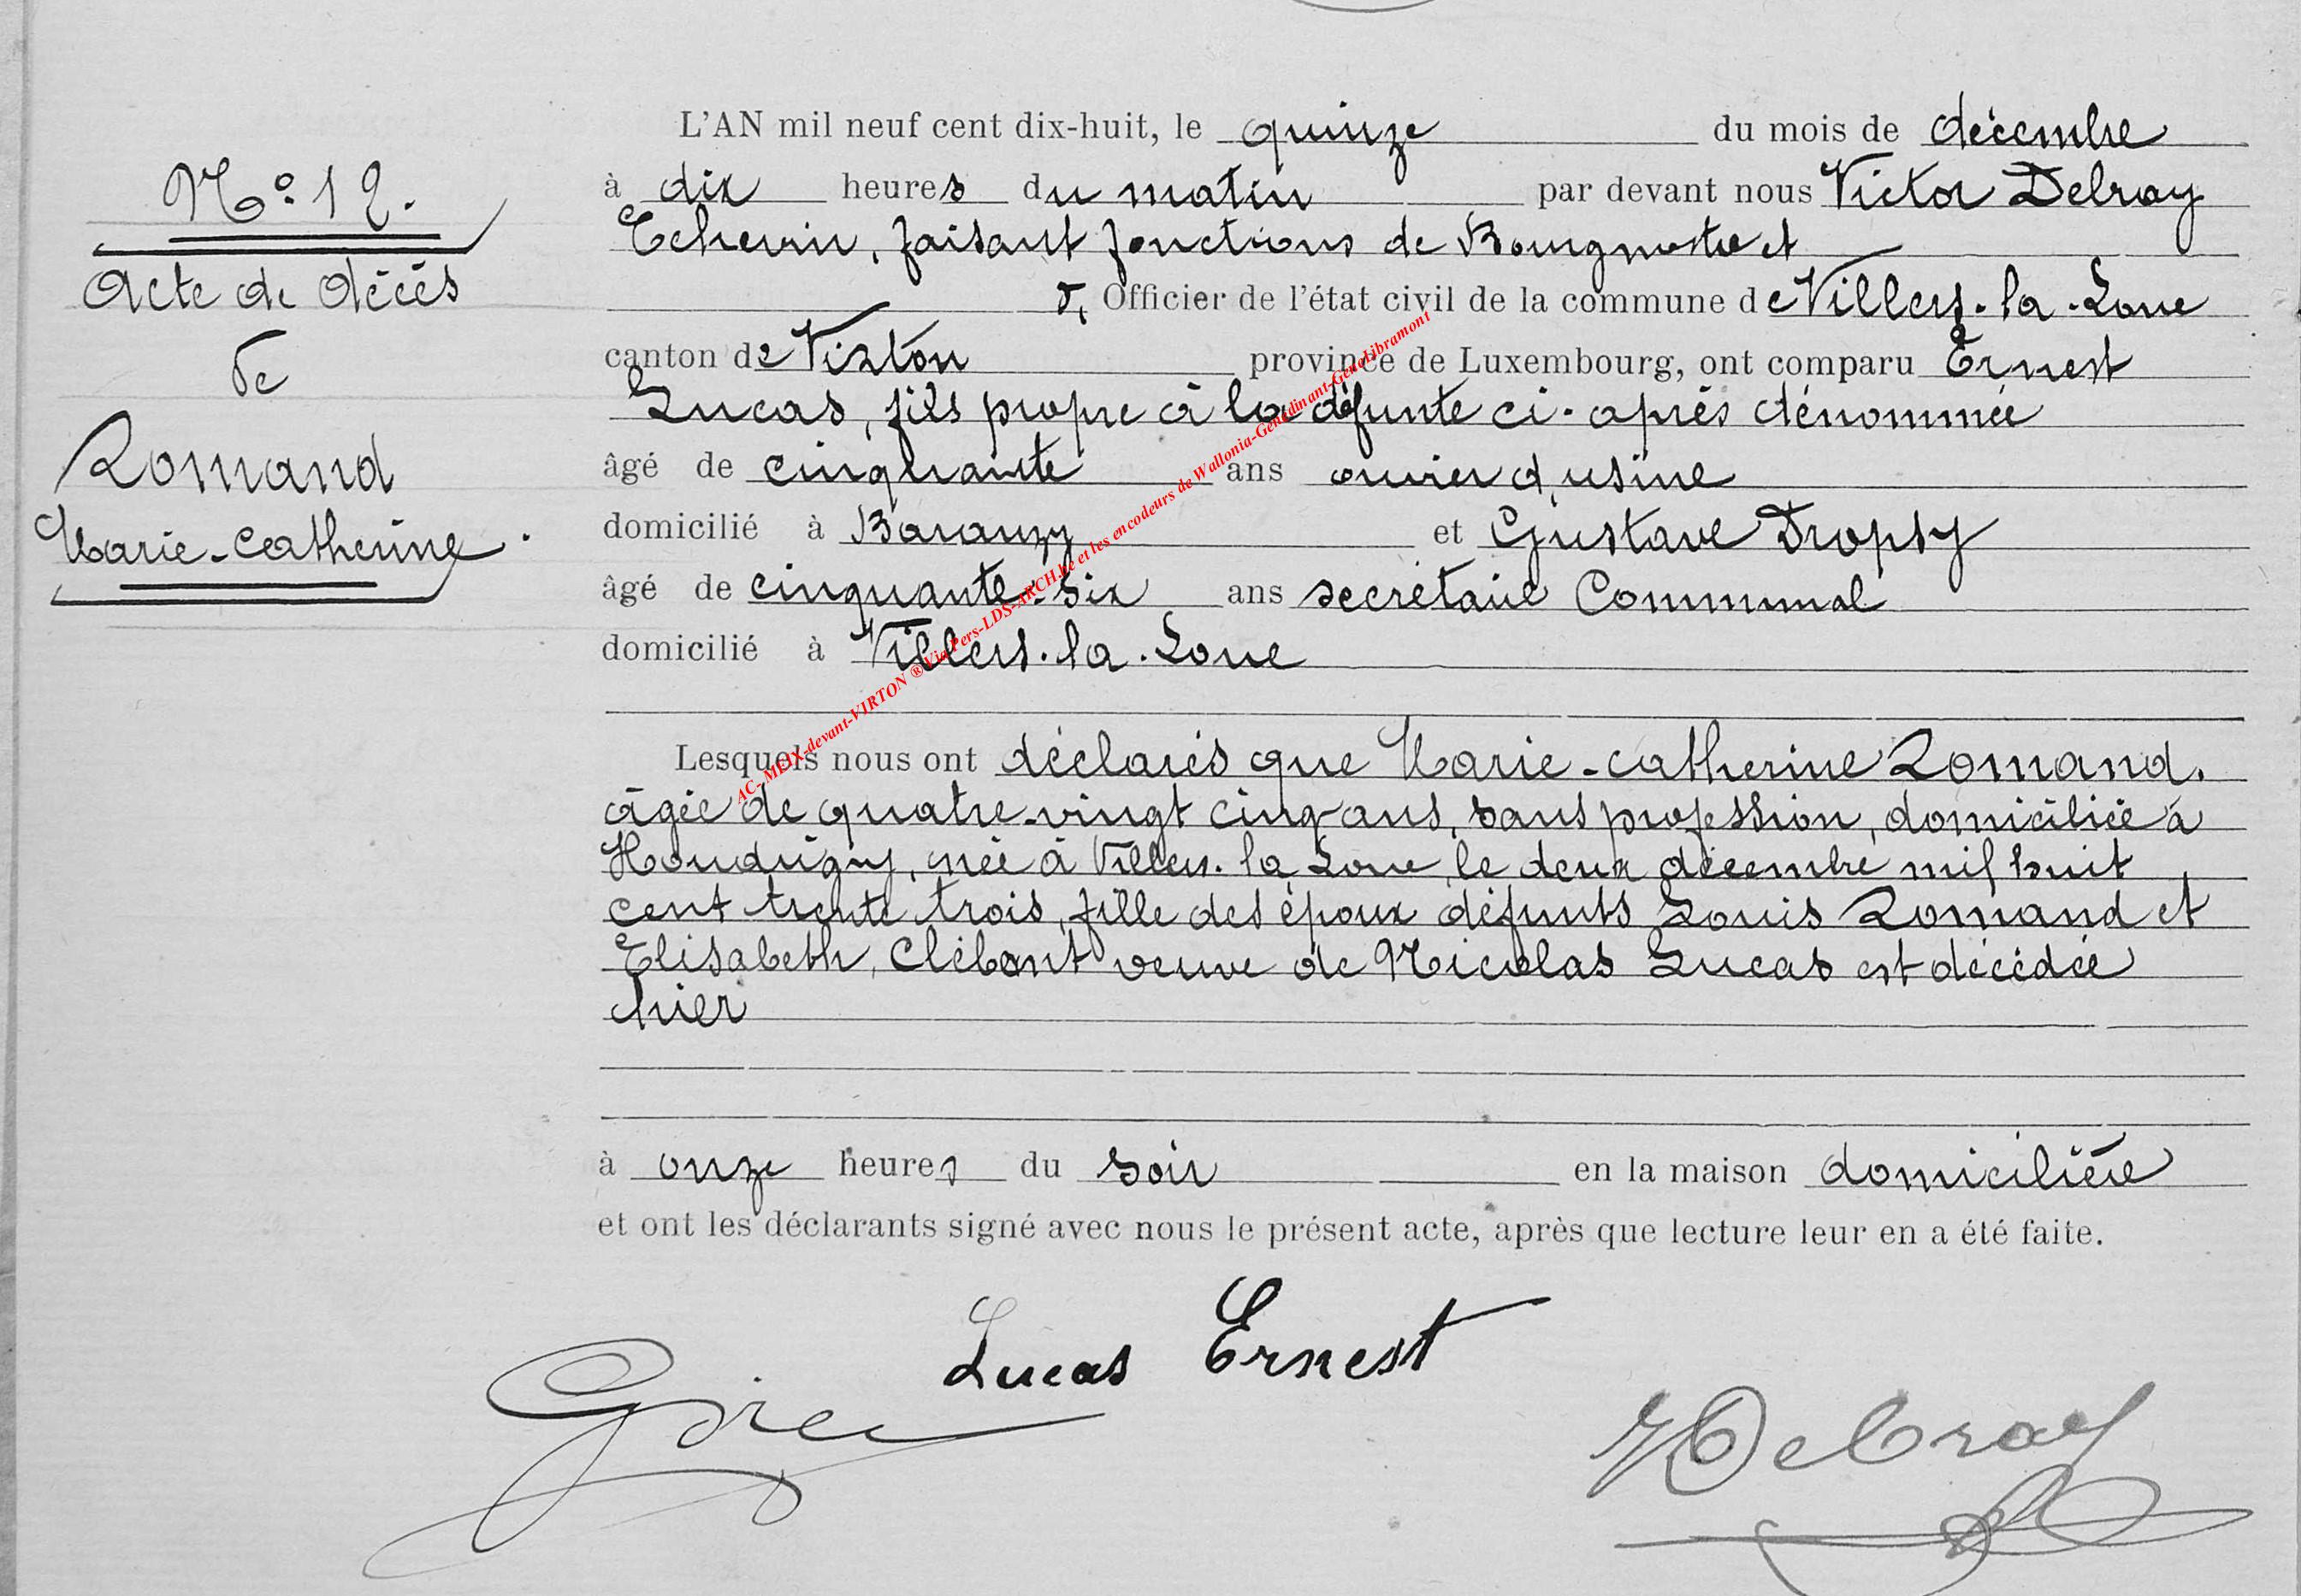 N° 12.
Acte de décès
de
Romand
Marie-Catherine.
L'AN mil neuf cent dix-huit, le quinze du mois de décembre
à dix heures du matin par devant nous Victor Delray
Echevin, faisant fonctions de Bourgmestre et
Officier de l'état civil de la commune de Villers-la-Loue
canton de Virton province de Luxembourg, ont comparu Ernest
Lucas, fils propre à la défunte ci-après dénommée
âgé de cinquante ans ouvrier d'usine
domicilié à Baranzy et Gustave Dropsy
âgé de cinquante-six ans secrétaire Communal
domicilié à Villers-la-Loue
Lesquels nous ont déclarés que Marie-Catherine Romand,
âgée de quatre-vingt cinq ans, sans profession, domiciliée à
Houdrigny, née à Villers-la Loue, le deux décembre mil huit
cent trente trois, fille des époux défunts Louis Romand et
Elisabeth, Clébant veuve de Nicolas Lucas est décédée
hier
à onze heures du soir en la maison domicilière
et ont les déclarants signé avec nous le présent acte, après que lecture leur en a été faite.
Lucas Ernest
VDelray
AC-MEIX-devant-VIRTON ® Via Pers-LDS-ARCH.be et les encodeurs de Wallonia-Genedinant-GenaLibramont